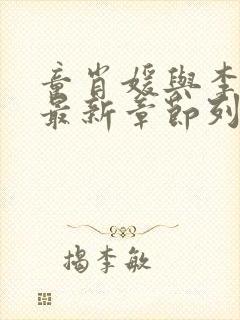 童肖媛與李
最新章節列
揭李敏